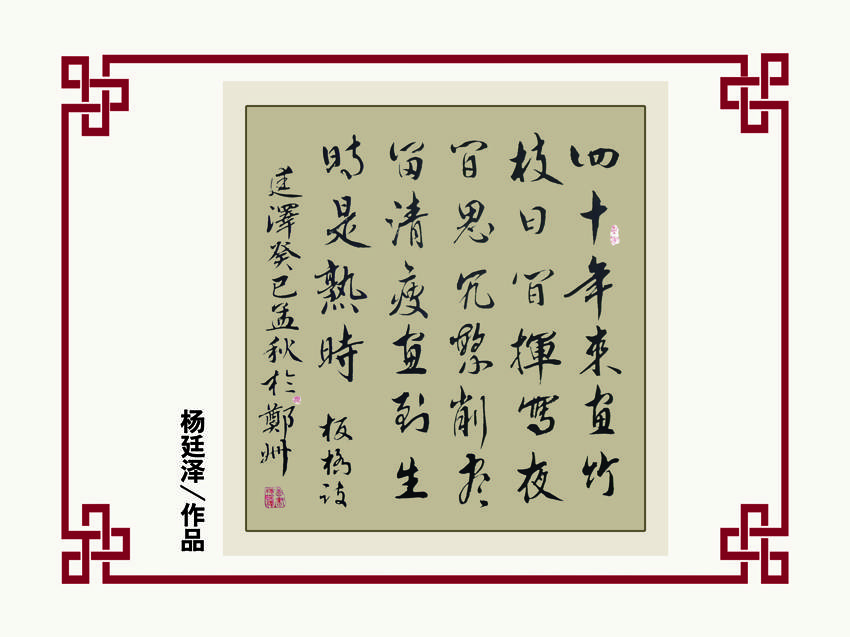 四十年來畫竹
枝日間揮寫夜
間思冗繁削盡
留清瘦畫到生
時是熟時 板橋詩
廷澤癸巳孟秋於鄭州
杨廷泽/作品